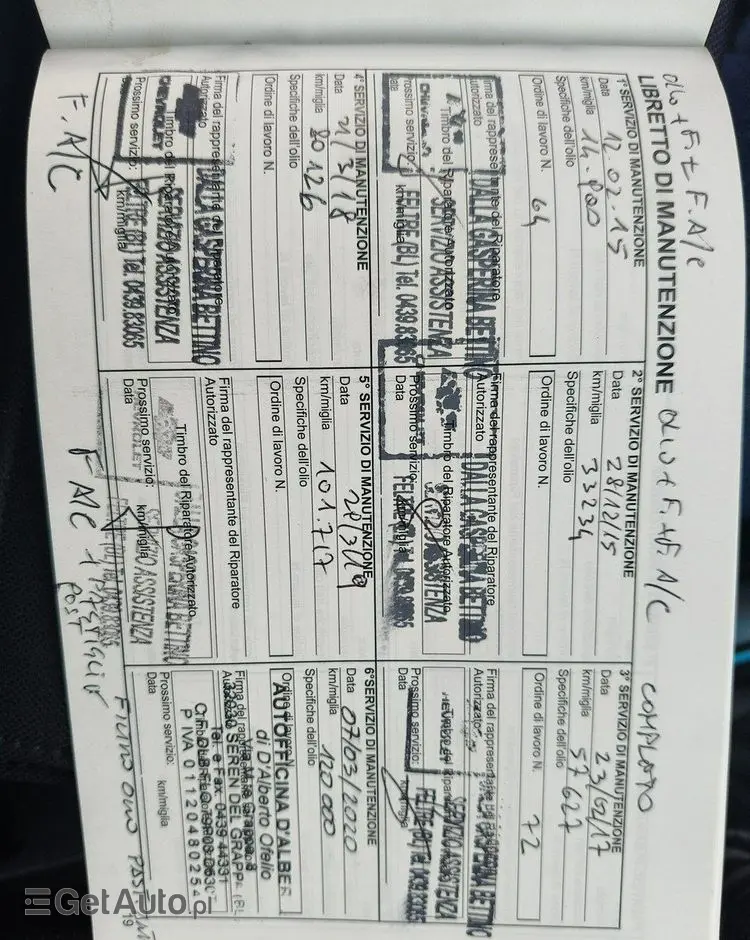 LIBRETTO DI MANUTENZIONE
olio + F + F. A/C
1° SERVIZIO DI MANUTENZIONE
Data 12.02.15
km/miglia 14.900
Specifiche dell'olio
Ordine di lavoro N. 64
Firma del rappresentante del Riparatore
Autorizzato
Timbro del Riparatore Autorizzato
Prossimo servizio:
Data
km/miglia
DALLA GASPERINA BETTINO
SERVIZIO ASSISTENZA
FELTRE (BL) Tel. 0439.83065
olio + F. + F. A/C
2° SERVIZIO DI MANUTENZIONE
Data 28/12/15
km/miglia 33234
Specifiche dell'olio
Ordine di lavoro N.
Firma del rappresentante del Riparatore
Autorizzato
Timbro del Riparatore Autorizzato
Prossimo servizio:
Data
DALLA GASPERINA BETTINO
ASSISTENZA
FELTRE (BL) Tel. 0439.83065
COMPLETO
3° SERVIZIO DI MANUTENZIONE
Data 23/02/17
km/miglia 57627
Specifiche dell'olio
Ordine di lavoro N. 72
Firma del rappresentante del
Autorizzato
Prossimo servizio:
Data
km/miglia
DALLA GASPERINA BETTINO
SERVIZIO ASSISTENZA
FELTRE (BL) Tel. 0439.83065
4° SERVIZIO DI MANUTENZIONE
Data 21/3/18
km/miglia 80126
Specifiche dell'olio
Ordine di lavoro N.
Firma del rappresentante del Riparatore
Autorizzato
Timbro del
Prossimo servizio:
Data
km/miglia
CHEVROLET
DALLA GASPERINA BETTINO
SERVIZIO ASSISTENZA
FELTRE (BL) Tel. 0439.83065
F. A/C
5° SERVIZIO DI MANUTENZIONE
Data 28/3/19
km/miglia 101.717
Specifiche dell'olio
Ordine di lavoro N.
Firma del rappresentante del Riparatore
Autorizzato
Timbro del Riparatore Autorizzato
Prossimo servizio:
Data
km/miglia
CHEVROLET
DALLA GASPERINA BETTINO
SERVIZIO ASSISTENZA
FELTRE (BL) Tel. 0439.83065
F A/C + PASTIGLIE
POST
6° SERVIZIO DI MANUTENZIONE
Data 07/03/2020
km/miglia 120000
Specifiche dell'olio
Ordine di lavoro N.
Firma del
Prossimo servizio:
Data
km/miglia
AUTOFFICINA D'ALBER
di D'Alberto Ofelio
32030 SEREN DEL GRAPPA (BL)
Tel. e Fax 0439 44331
P. IVA 01120480254
GetAuto.pl